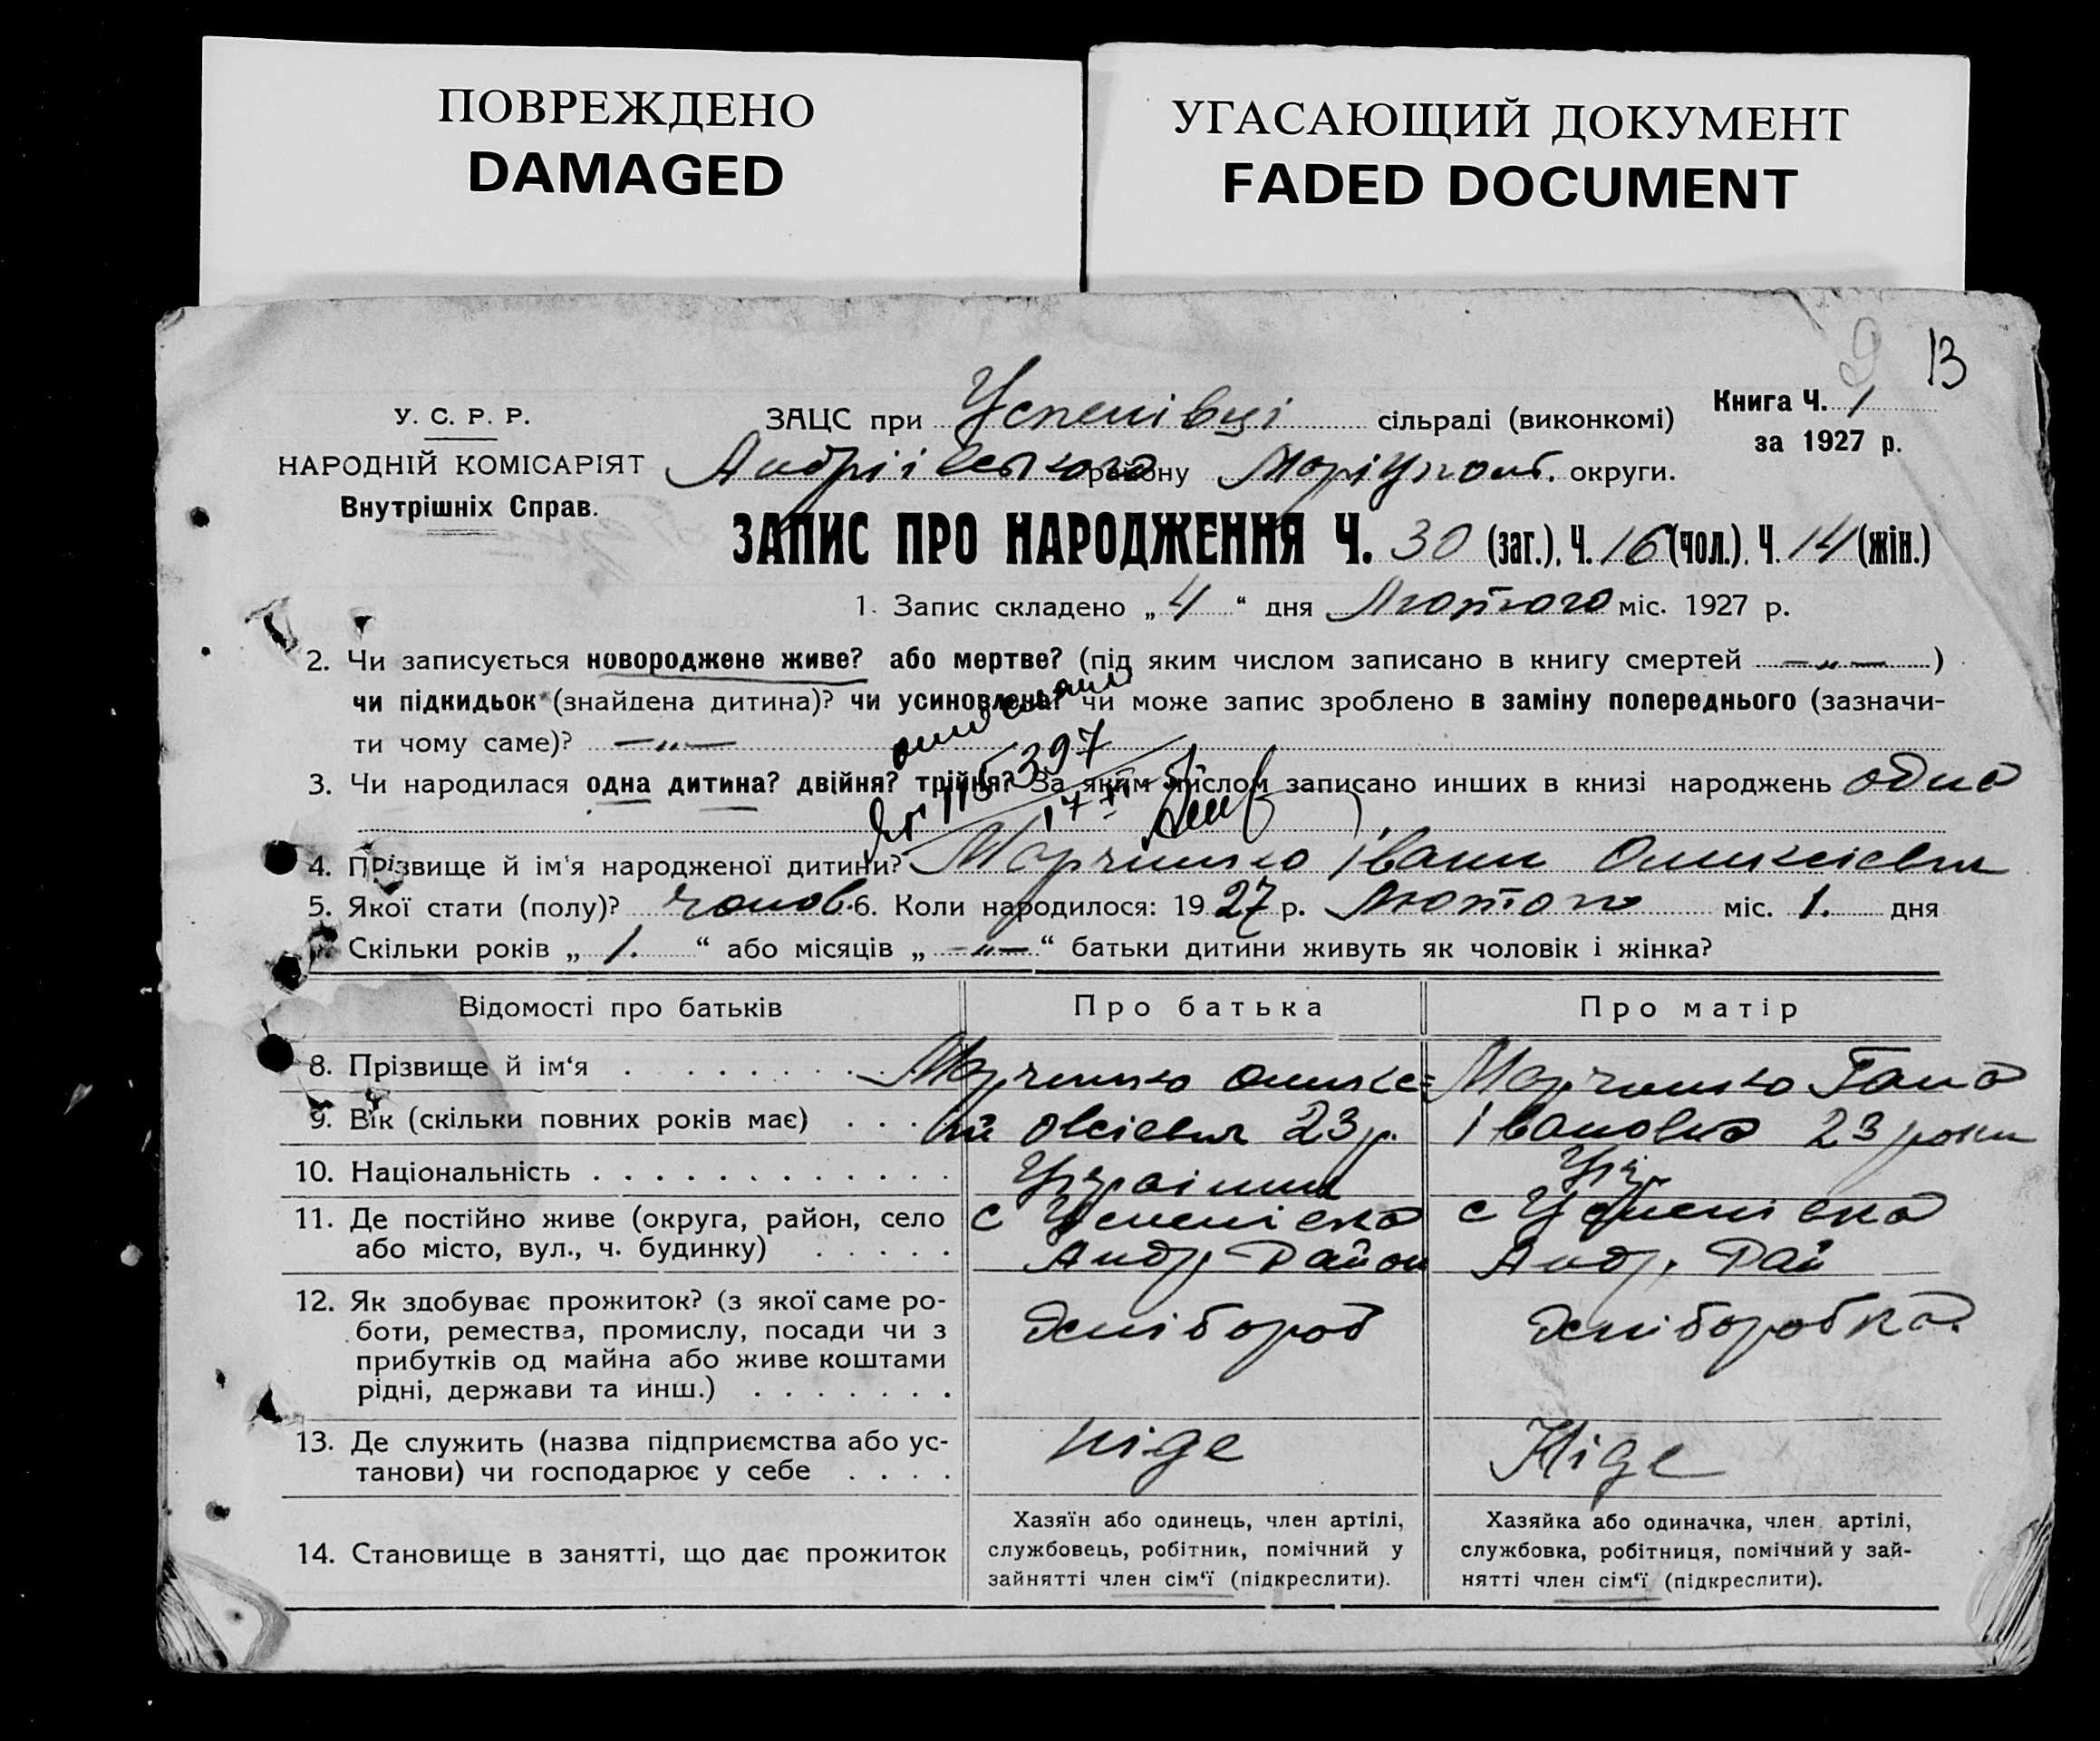 ПОВРЕЖДЕНО
DAMAGED
УГАСАЮЩИЙ ДОКУМЕНТ
FADED DOCUMENT
9 13
У. С. Р. Р.
НАРОДНІЙ КОМІСАРІЯТ
Внутрішніх Справ.
ЗАЦС при Успенівці сільраді (виконкомі)
Андріївського району Маріупол. округи.
Книга Ч. 1
за 1927 р.
ЗАПИС ПРО НАРОДЖЕННЯ Ч. 30 (заг.), Ч. 16 (чол.), Ч. 14 (жін.)
1. Запис складено „ 4 “ дня Лютого міс. 1927 р.
2. Чи записується новороджене живе? або мертве? (під яким числом записано в книгу смертей —„— )
чи підкидьок (знайдена дитина)? чи усиновлена? чи може запис зроблено в заміну попереднього (зазначи-
ти чому саме)? —„—
397
17
3. Чи народилася одна дитина? двійня? трійня? За яким числом записано инших в книзі народжень одна
4. Прізвище й ім'я народженої дитини? Марченко Іван Олексієвич
5. Якої стати (полу)? чолов. 6. Коли народилося: 1927 р. Лютого міс. 1. дня
7. Скільки років „ 1. “ або місяців „ —„— “ батьки дитини живуть як чоловік і жінка?
Відомості про батьків Про батька Про матір
8. Прізвище й ім‘я . . . . . . . . Марченко Олексе= Марченко Гана
9. Вік (скільки повних років має) . . . ій Овсієвич 23 р. Івановна 23 роки
10. Національність . . . . . . . . . . . . Українец Укр.
11. Де постійно живе (округа, район, село с Успенівка с Успенівка
або місто, вул., ч. будинку) . . . . . Андр. Район Андр. Рай
12. Як здобуває прожиток? (з якої саме ро-
боти, ремества, промислу, посади чи з хлібороб хліборобка
прибутків од майна або живе коштами
рідні, держави та инш.) . . . . . . .
13. Де служить (назва підприємства або ус- ніде Ніде
танови) чи господарює у себе . . . .
14. Становище в занятті, що дає прожиток
Хазяїн або одинець, член артілі,
службовець, робітник, помічний у
зайнятті член сім‘ї (підкреслити).
Хазяйка або одиначка, член артілі,
службовка, робітниця, помічний у зай-
нятті член сім‘ї (підкреслити).